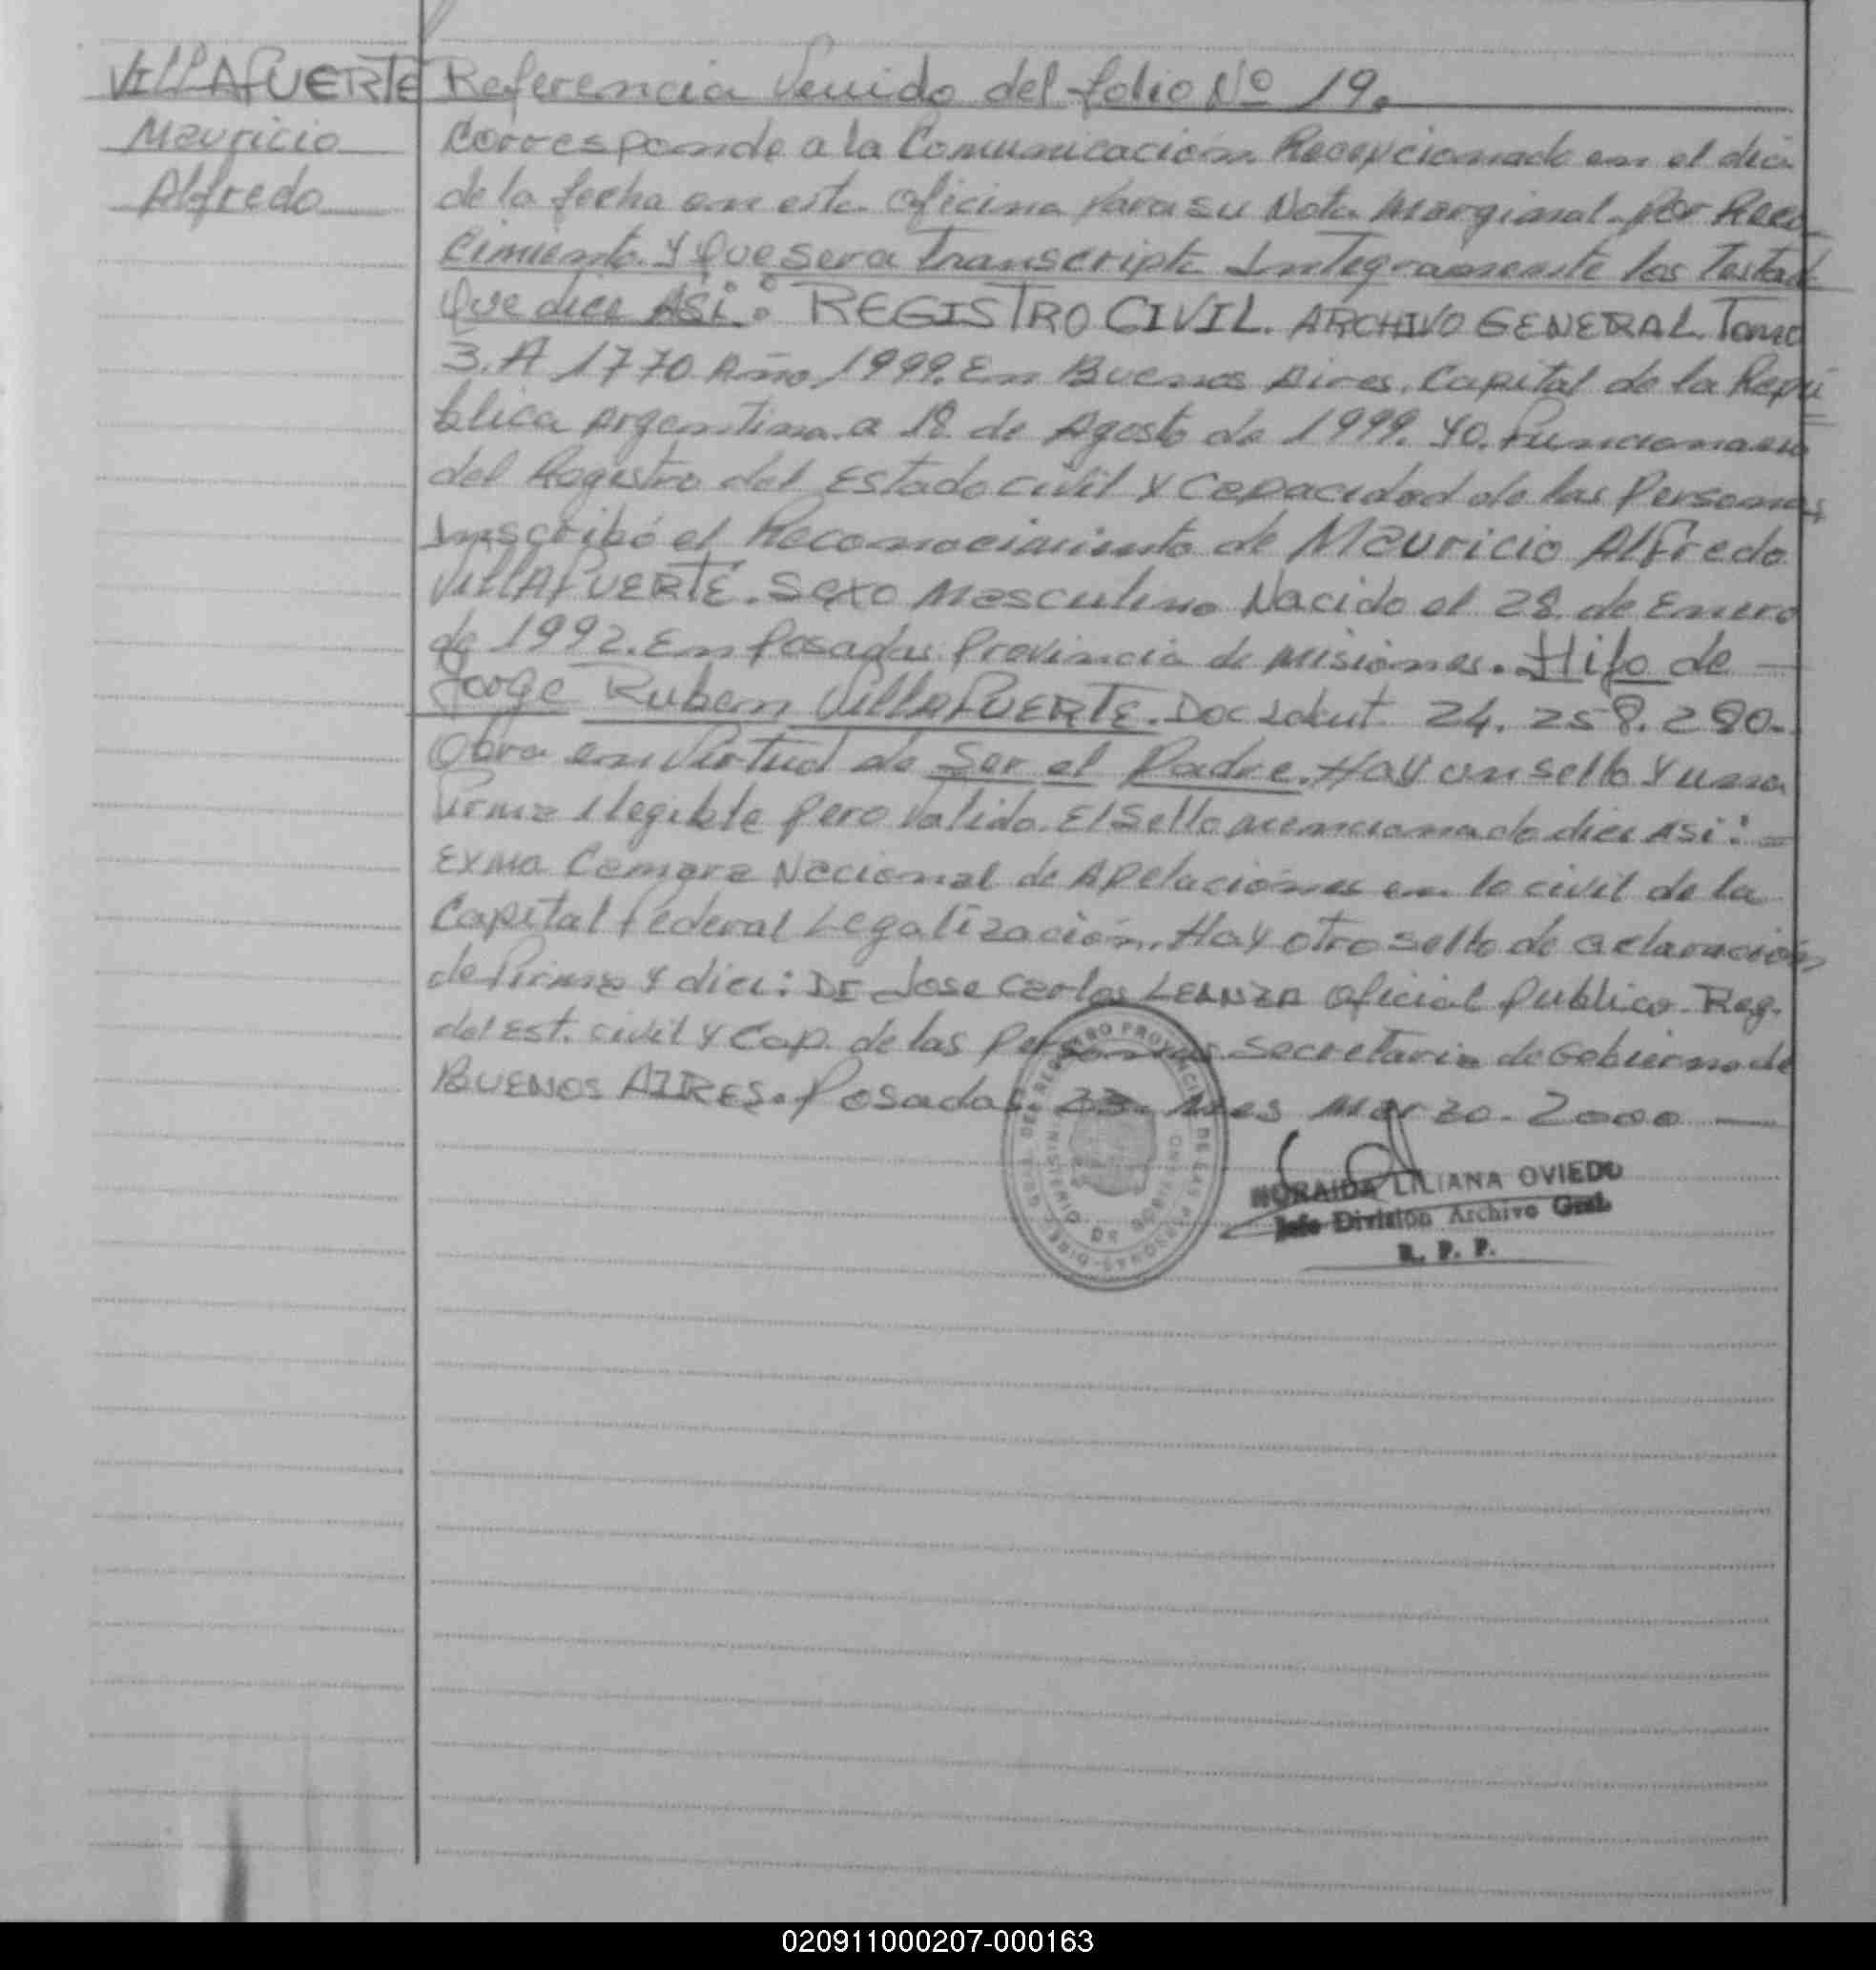 VILLAFUERTE
Mauricio
Alfredo
Referencia Venido del folio Nº 19.
Corresponde a la Comunicación Recepcionada en el dia
de la fecha en esta oficina para su Nota Marginal. por Reco
cimiento. Y Que sera transcripta Integramente los Testad
Que dice ASi: REGISTRO CIVIL. ARCHIVO GENERAL. Tomo
3. A 1770 Año 1999. En Buenos Aires, Capital de la Repú
blica Argentina. a 18 de Agosto de 1999. Yo. Funcionario
del Registro del Estado civil y Capacidad de las Personas
Inscribó el Reconocimiento de Mauricio Alfredo
VILLAFUERTE. Sexo Masculino Nacido el 28 de Enero
de 1992. En Posadas Provincia de Misiones. Hijo de —
Jorge Ruben VILLAFUERTE. Doc Ident. 24. 258. 280.
Obra en Virtud de Ser el Padre. Hay un sello y una
firma ilegible pero valido. El Sello mencionado dice ASi: =
EXMA Camara Nacional de Apelaciónes en lo civil de la
Capital Federal Legalización. Hay otro sello de aclaración
de firma y dice: DE Jose Carlos LEANZA Oficial Publico. Reg.
del Est. civil y Cap. de las Personas Secretaria de Gobierno de
BUENOS AIRES. Posadas. 23. Mes Marzo. 2000 —
NORAIDA LILIANA OVIEDO
Jefe División Archivo Gral.
R. P. P.
020911000207-000163